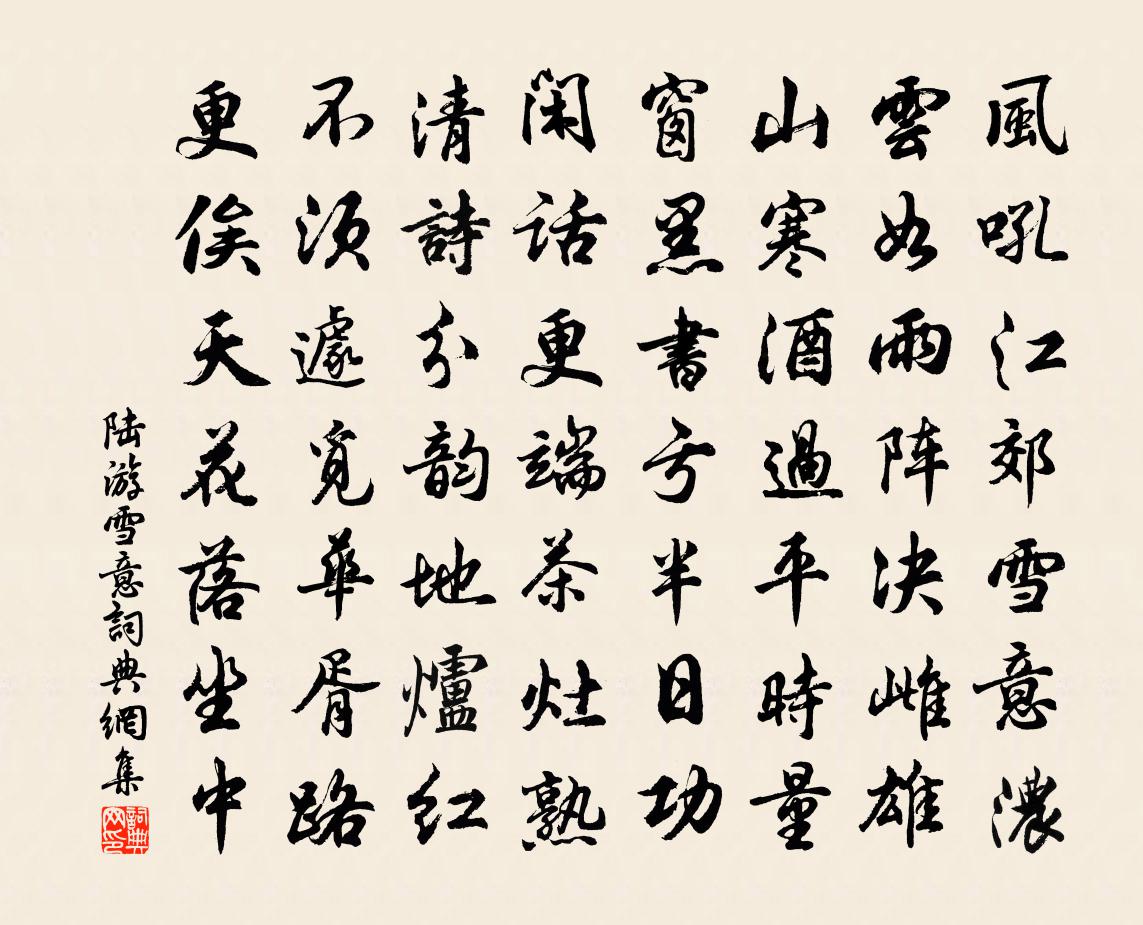 風吼江郊雪意濃
雲如雨阵決雌雄
山寒酒過平時量
窗黑書亏半日功
閑話更端茶灶熟
清詩分韵地爐紅
不須遽覓華胥路
更俟天花落坐中
陆游雪意詞典網集
詞典网印